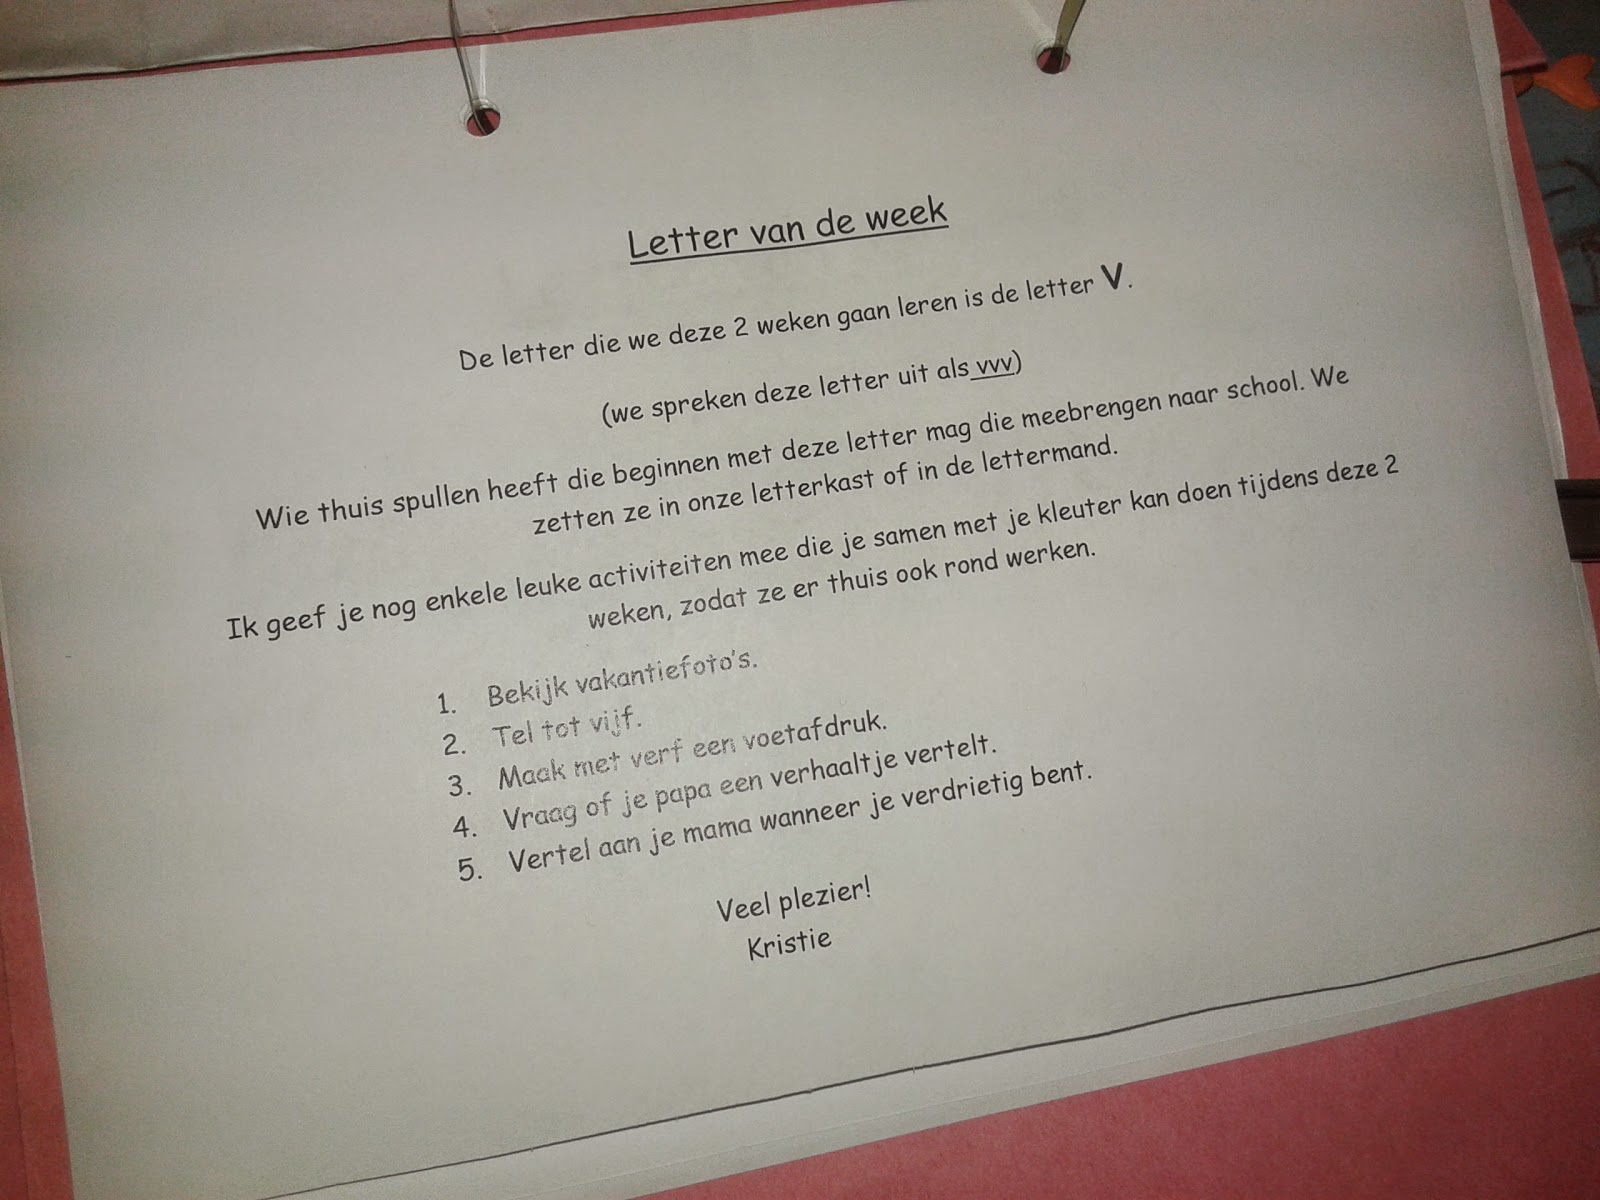 Letter van de week
De letter die we deze 2 weken gaan leren is de letter V.
(we spreken deze letter uit als vvv)
Wie thuis spullen heeft die beginnen met deze letter mag die meebrengen naar school. We
zetten ze in onze letterkast of in de lettermand.
Ik geef je nog enkele leuke activiteiten mee die je samen met je kleuter kan doen tijdens deze 2
weken, zodat ze er thuis ook rond werken.
1. Bekijk vakantiefoto's.
2. Tel tot vijf.
3. Maak met verf een voetafdruk.
4. Vraag of je papa een verhaaltje vertelt.
5. Vertel aan je mama wanneer je verdrietig bent.
Veel plezier!
Kristie